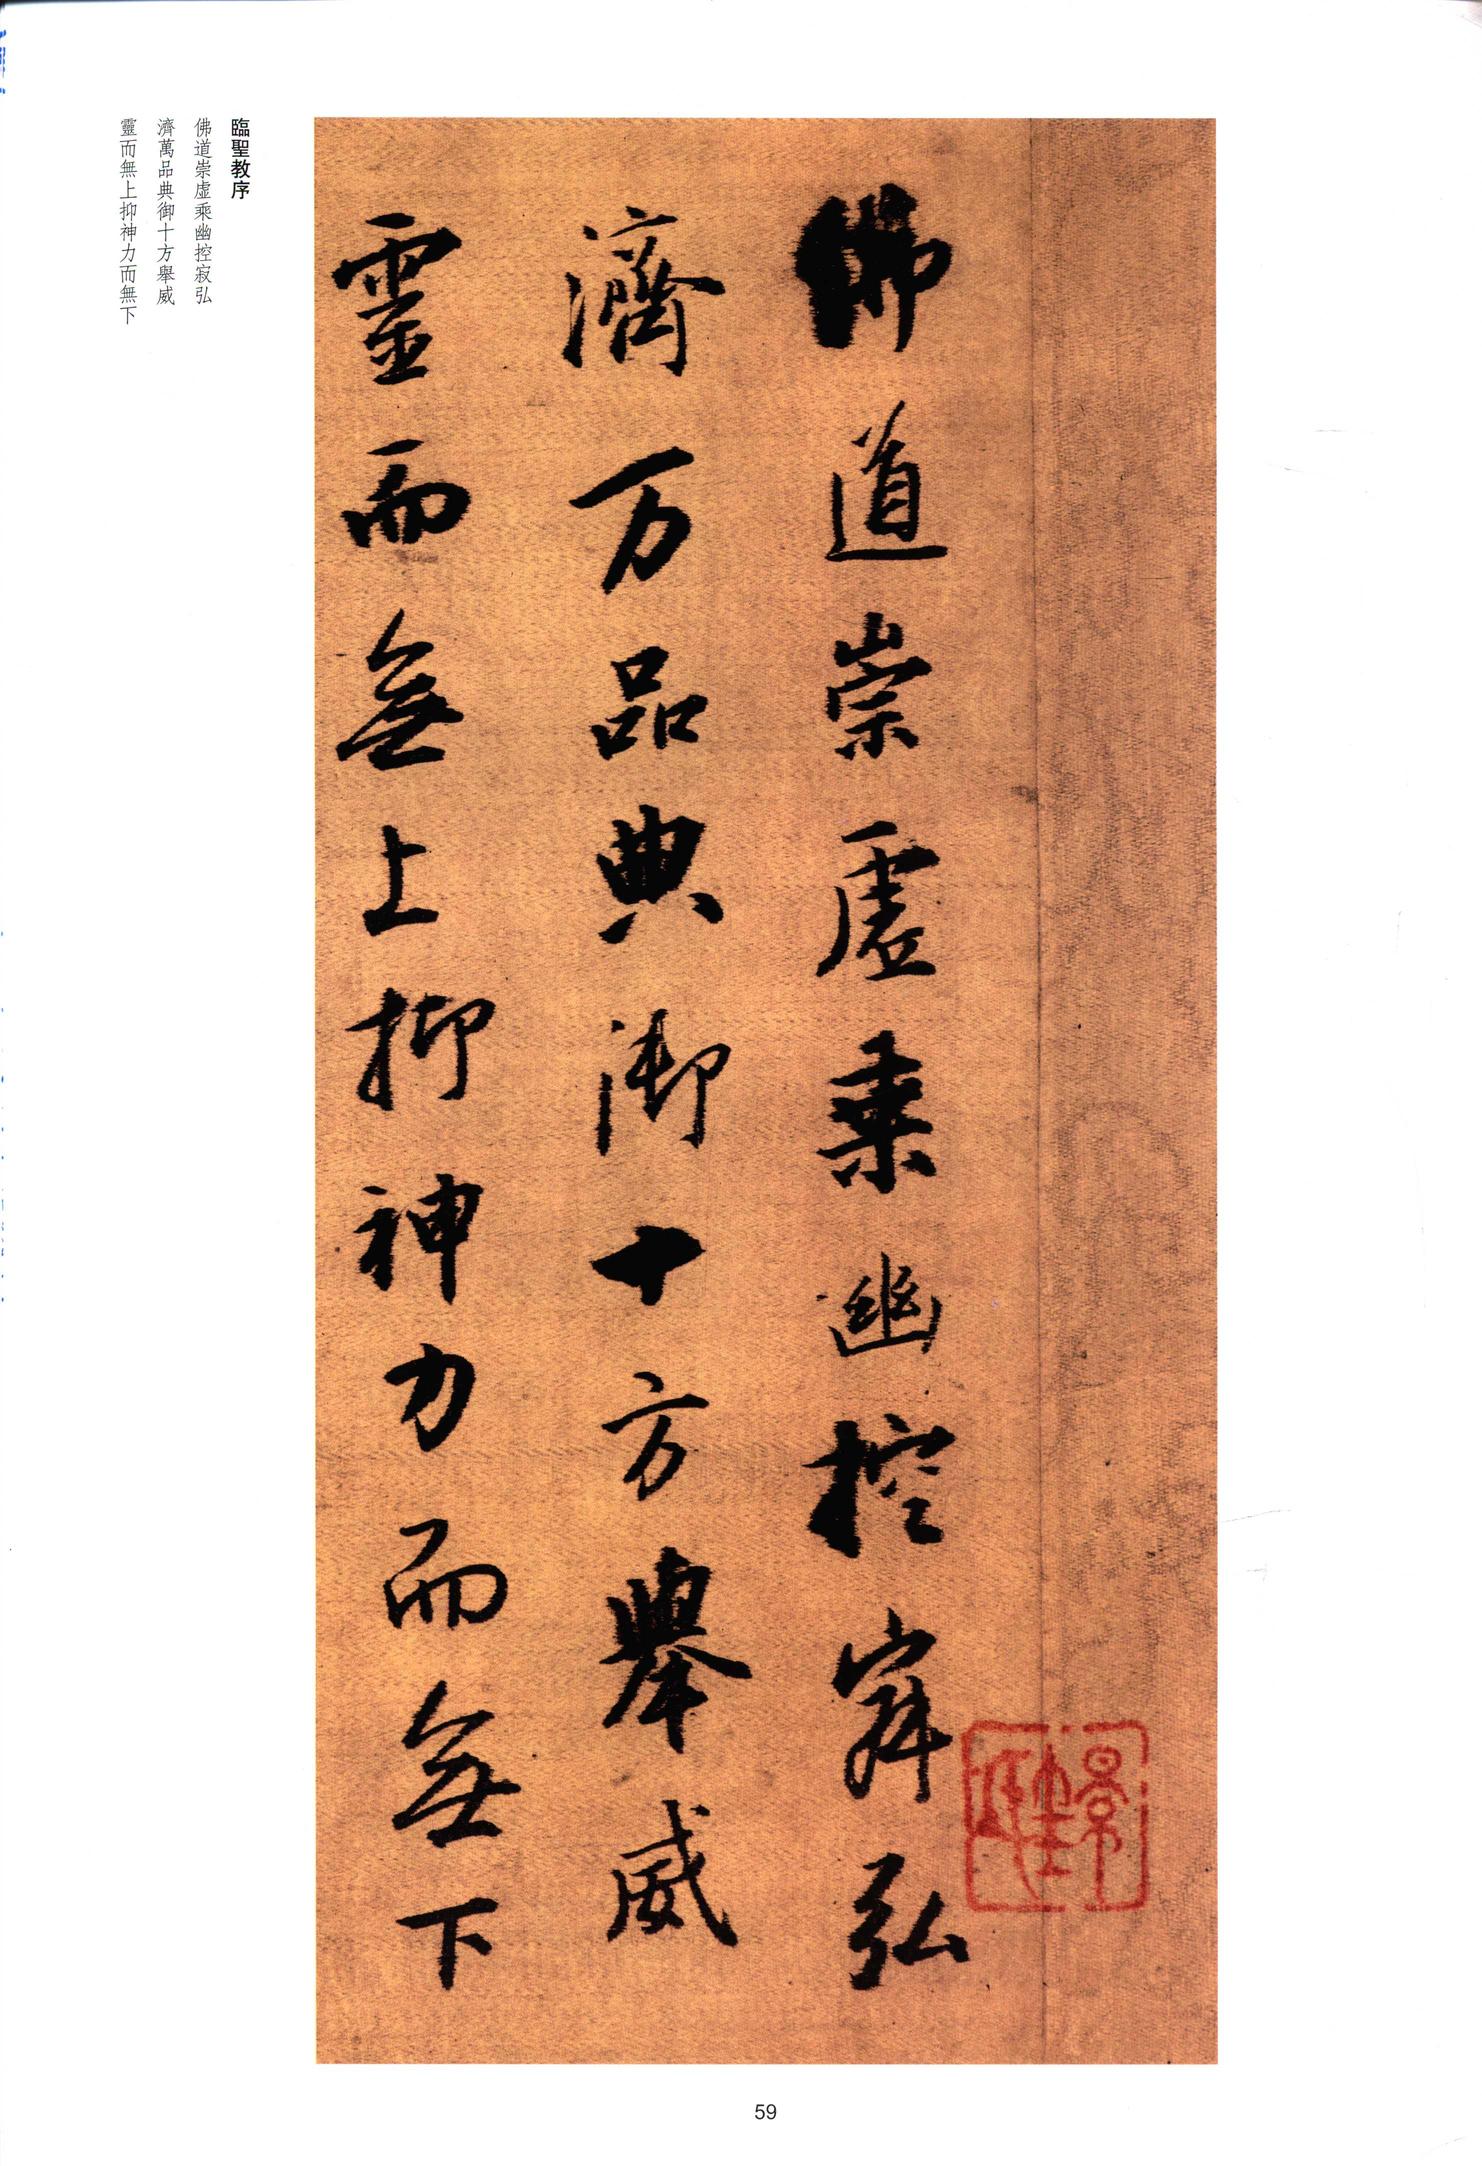 佛道崇虛乘幽控寂弘
濟万品典御十方舉威
靈而無上抑神力而無下
臨聖教序
佛道崇虛乘幽控寂弘
濟萬品典御十方舉威
靈而無上抑神力而無下
59